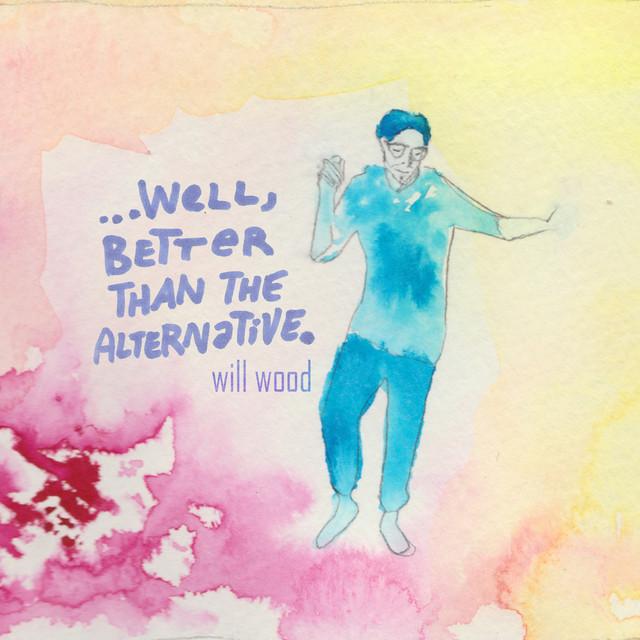 ...WELL,
BETTER
THAN THE
ALTERNATIVE.
will wood